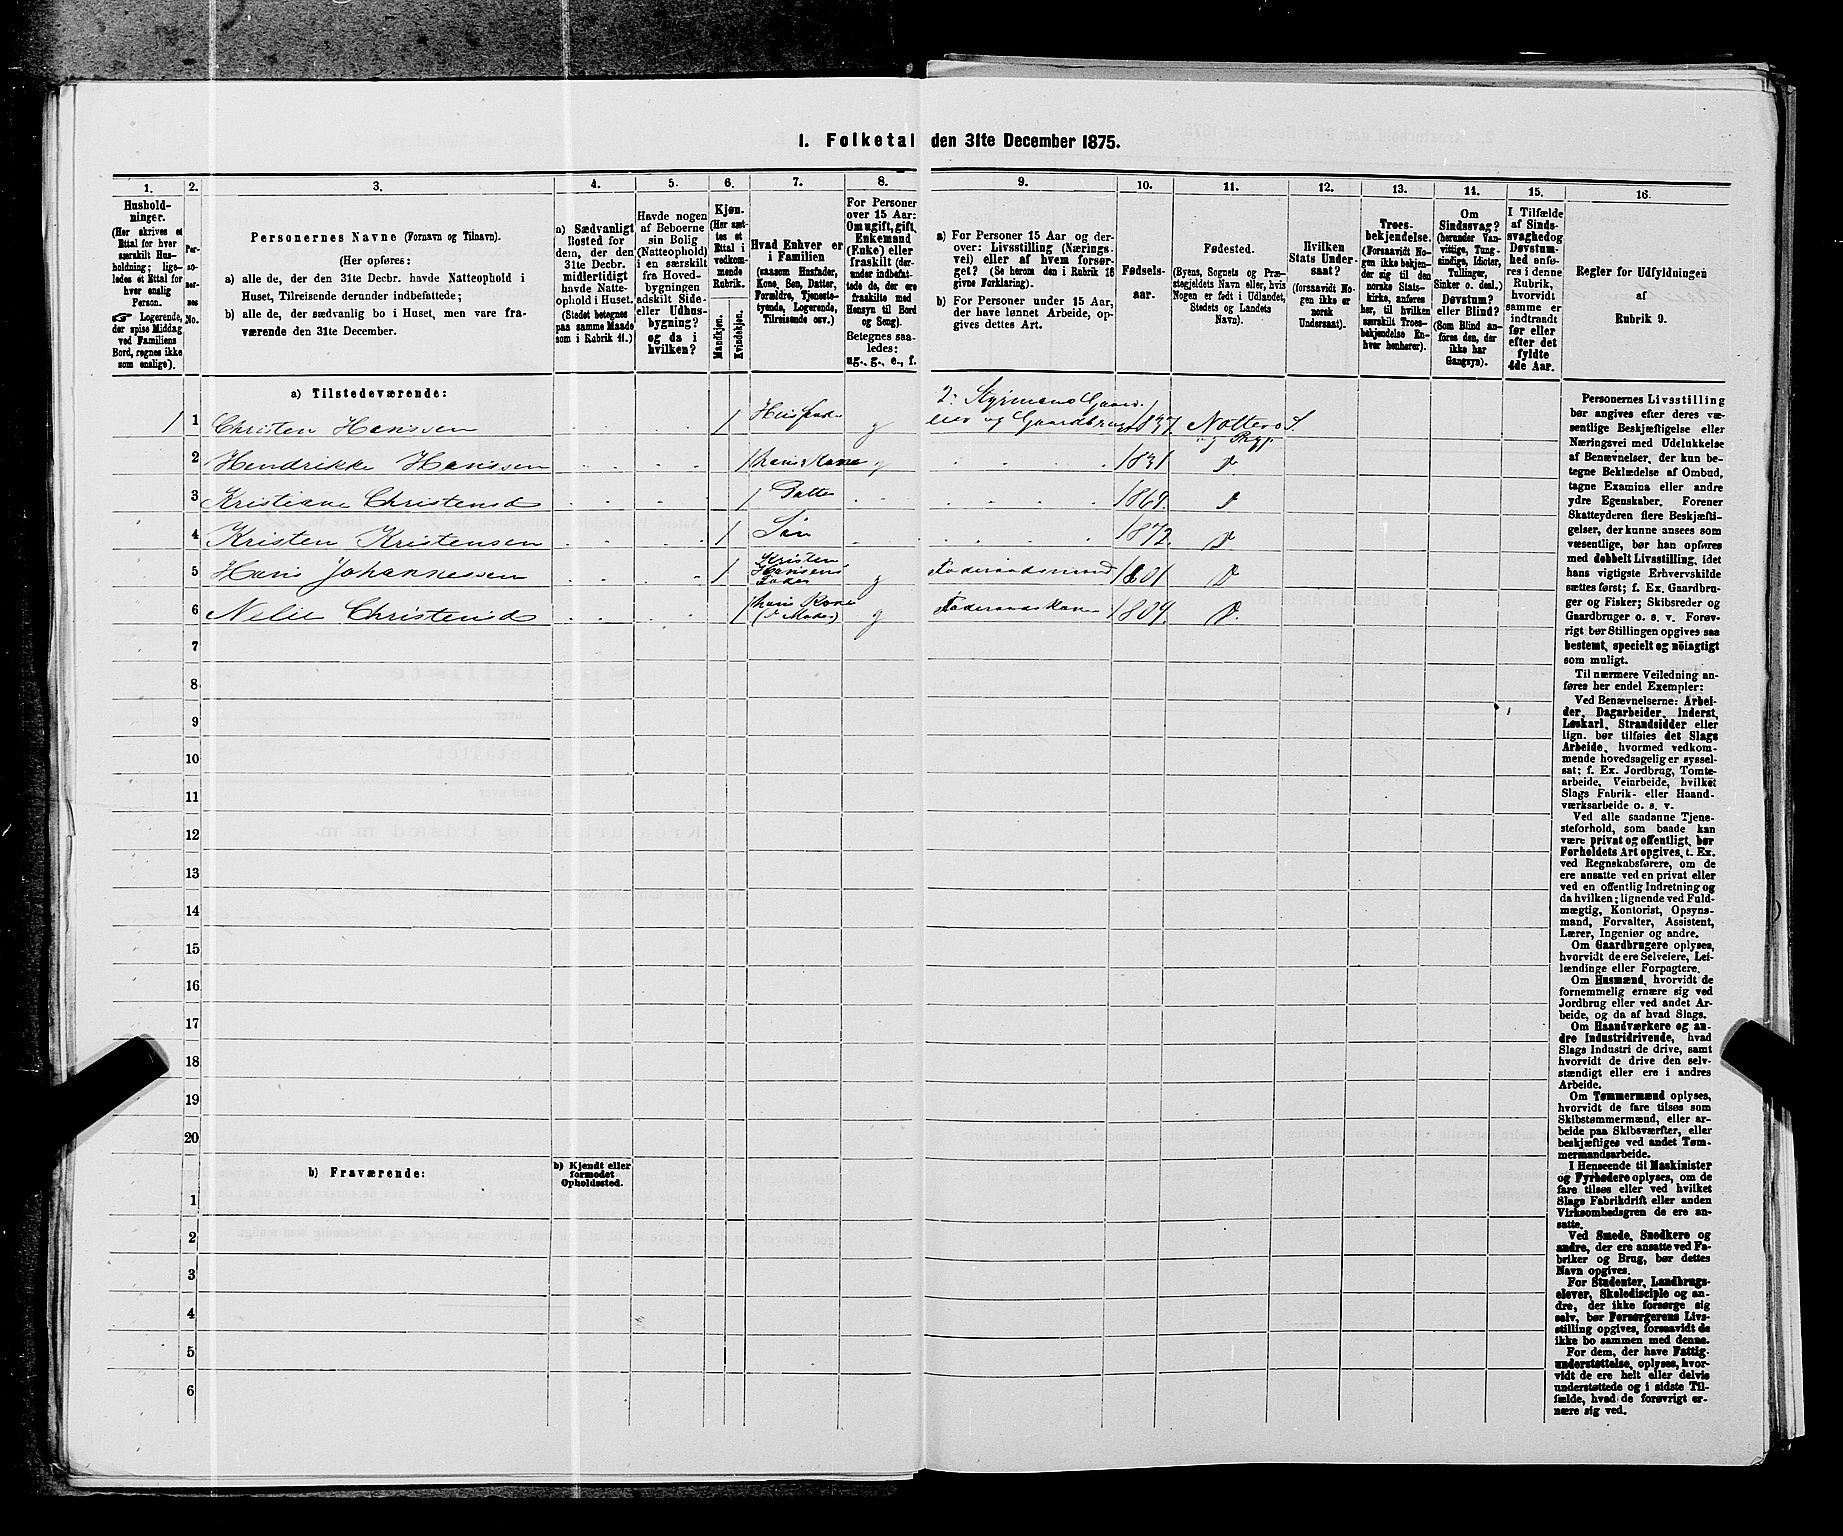 1. Folketal den 31te December 1875.
1. 2. 3. 4. 5. 6. 7. 8. 9. 10. 11. 12. 13. 14. 15. 16.
Hushold-
ninger.
(Her skrives et
Ettal for hver
særskilt Hus-
holdning; lige-
ledes et Ettal for
hver enslig
Person.
☞ Logerende,
der spise Middag
ved Familiens
Bord, regnes ikke
som enslige).
Per-
so-
ner-
nes
No.
Personernes Navne (Fornavn og Tilnavn).
(Her opføres:
a) alle de, der den 31te Decbr. havde Natteophold i
Huset, Tilreisende derunder indbefattede;
b) alle de, der sædvanlig bo i Huset, men vare fra-
værende den 31te December.
a) Sædvanligt
Bosted for
dem, der den
31te Decbr.
midlertidigt
havde Natte-
ophold i Huset.
(Stedet betegnes
paa samme Maade
som i Rubrik 11.)
Havde nogen
af Beboerne
sin Bolig
(Natteophold)
i en særskilt
fra Hoved-
bygningen
adskilt Side-
eller Udhus-
bygning?
og da i
hvilken?
Kjøn.
(Her sæt-
tes et
Ettal i
vedkom-
mende
Rubrik.
Mandkjøn.
Kvindekjøn.
Hvad Enhver er
i Familien
(saasom Husfader,
Kone, Søn, Datter,
Forældre, Tjeneste-
tyende, Logerende,
Tilreisende osv.)
For Personer
over 15 Aar:
Om ugift, gift,
Enkemand
(Enke) eller
fraskilt (der-
under indbefat-
tede de, der ere
fraskilte med
Hensyn til Bord
og Seng).
Betegnes saa-
ledes:
ug., g., e., f.
a) For Personer 15 Aar og der-
over: Livsstilling (Nærings-
vei) eller af hvem forsør-
get? (Se herom den i Rubrik 16
givne Forklaring).
b) For Personer under 15 Aar,
der have lønnet Arbeide, op-
gives dettes Art.
Fødsels-
aar.
Fødested.
(Byens, Sognets og Præ-
stegjeldets Navn eller, hvis
Nogen er født i Udlandet,
Stedets og Landets
Navn).
Hvilken
Stats Under-
saat?
(forsaavidt No-
gen ikke er
norsk
Undersaat).
Troes-
bekjendelse.
(Forsaavidt No-
gen ikke bekjen-
der sig til den
norske Stats-
kirke, anføres
her, til hvilken
særskilt Troes-
bekjendelse En-
hver henhører).
Om
Sindssvag?
(herunder Van-
vittige, Tung-
sindige, Idioter,
Tullinger,
Sinker o. desl.)
Døvstum?
eller Blind?
(Som Blind an-
føres den, der
ikke har
Gangsyn).
I Tilfælde
af Sinds-
svaghed og
Døvstum-
hed anfø-
res i denne
Rubrik,
hvorvidt
samme er
indtraadt
før eller
efter det
fyldte
4de Aar.
Regler for Udfyldningen
af
Rubrik 9.
a) Tilstedeværende:
1 1 Christen Hanssen 1 Husfader g 2: Styrmand Gaard-
eier og Gaardbruger 1837. Nøtterø S.
og Prgj.
2 Hendrikke Hanssen 1 hans Kone g 1831 D
3 Kristiane Christensd 1 Datter 1868. D
4 Kristen Kristensen 1 Søn 1872. D
5 Hans Johannessen 1 Kristen
Hansens
Fader g Føderaadsmand 1801 D
6 Nelie Christensd 1 hans Kone
(Moder) g Føderaadskone 1804. D.
7
8
9
10
11
12
13
14
15
16
17
18
19
20
b) Fraværende:
b) Kjendt eller
formodet
Opholdssted.
1
2
3
4
5
6
Personernes Livsstilling
bør angives efter deres væ-
sentlige Beskjæftigelse eller
Næringsvei med Udelukkelse
af Benævnelser, der kun be-
tegne Beklædelse af Ombud,
tagne Examina eller andre
ydre Egenskaber. Forener
Skatteyderen flere Beskjæfti-
gelser, der kunne ansees som
væsentlige, bør han opføres
med dobbelt Livsstilling, idet
hans vigtigste Erhvervskilde
sættes først; f. Ex. Gaardbru-
ger og Fisker; Skibsreder og
Gaardbruger o. s. v. Forøv-
rigt bør Stillingen opgives saa
bestemt, specielt og nöiagtigt
som muligt.
Til nærmere Veiledning an-
føres her endel Exempler:
Ved Benævnelserne: Arbei-
der, Dagarbeider, Inderst,
Løskarl, Strandsidder eller
lign. bør tilføies det Slags
Arbeide, hvormed vedkom-
mende hovedsagelig er syssel-
sat; f. Ex. Jordbrug, Tomte-
arbeide, Veiarbeide, hvilket
Slags Fabrik- eller Haand-
værksarbeide o. s. v.
Ved alle saadanne Tjene-
steforhold, som baade kan
være privat og offentligt, bør
Forholdets Art opgives, t. Ex.
ved Regnskabsførere, om de
ere ansatte ved en privat eller
ved en offentlig Indretning og
da hvilken; lignende ved Fuld-
mægtig, Kontorist, Opsyns-
mand, Forvalter, Assistent,
Lærer, Ingeniør og andre.
Om Gaardbrugere oplyses,
hvorvidt de ere Selveiere, Lei-
lændinge eller Forpagtere.
Om Husmænd, hvorvidt de
fornemmelig ernære sig ved
Jordbrug eller ved andet Ar-
beide, og da af hvad Slags.
Om Haandværkere og an-
dre Industridrivende, hvad
Slags Industri de drive, samt
hvorvidt de drive den selv-
stændigt eller ere i andres
Arbeide.
Om Tømmermænd oplyses,
hvorvidt de fare tilsøs som
Skibstømmermænd, eller ar-
beide paa Skibsværfter, eller
beskjæftiges ved andet Tøm-
mermandsarbeide.
I Henseende til Maskinister
og Fyrbødere oplyses, om de
fare tilsøs eller ved hvilket
Slags Fabrikdrift eller anden
Virksomhedsgren de ere an-
satte.
Ved Smede, Snedkere og
andre, der ere ansatte ved Fa-
briker og Brug, bør dettes
Navn opgives.
For Studenter, Landbrugs-
elever, Skoledisciple og an-
dre, der ikke forsørge sig
selv, bør Forsørgerens Livs-
stilling opgives, forsaavidt de
ikke bo sammen med denne.
For dem, der have Fattig-
understøttelse, oplyses, hvor-
vidt de ere helt eller delvis
understøttede og i sidste Til-
fælde, hvad de forøvrigt er-
nære sig ved.